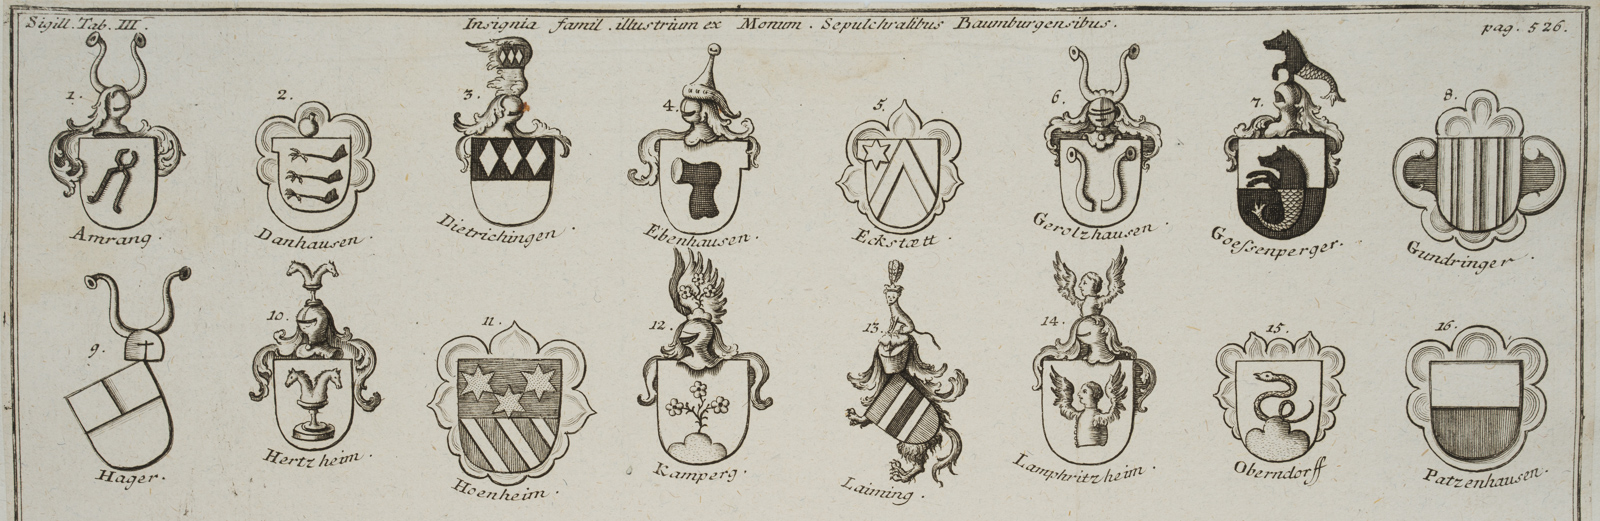 Sigill. Tab. III. Insignia famil. illustrium ex Monum. Sepulchralibus Baumburgensibus. pag. 526.
1. 2. 3. 4. 5. 6. 7. 8.
Amrang. Danhausen. Dietrichingen. Ebenhausen. Eckstætt. Gerolzhausen. Goessenperger. Gundringer.
9. 10. 11. 12. 13. 14. 15. 16.
Hager. Hertzheim. Hoenheim. Kamperg. Laiming. Lamphritzheim. Oberndorff Patzenhausen.